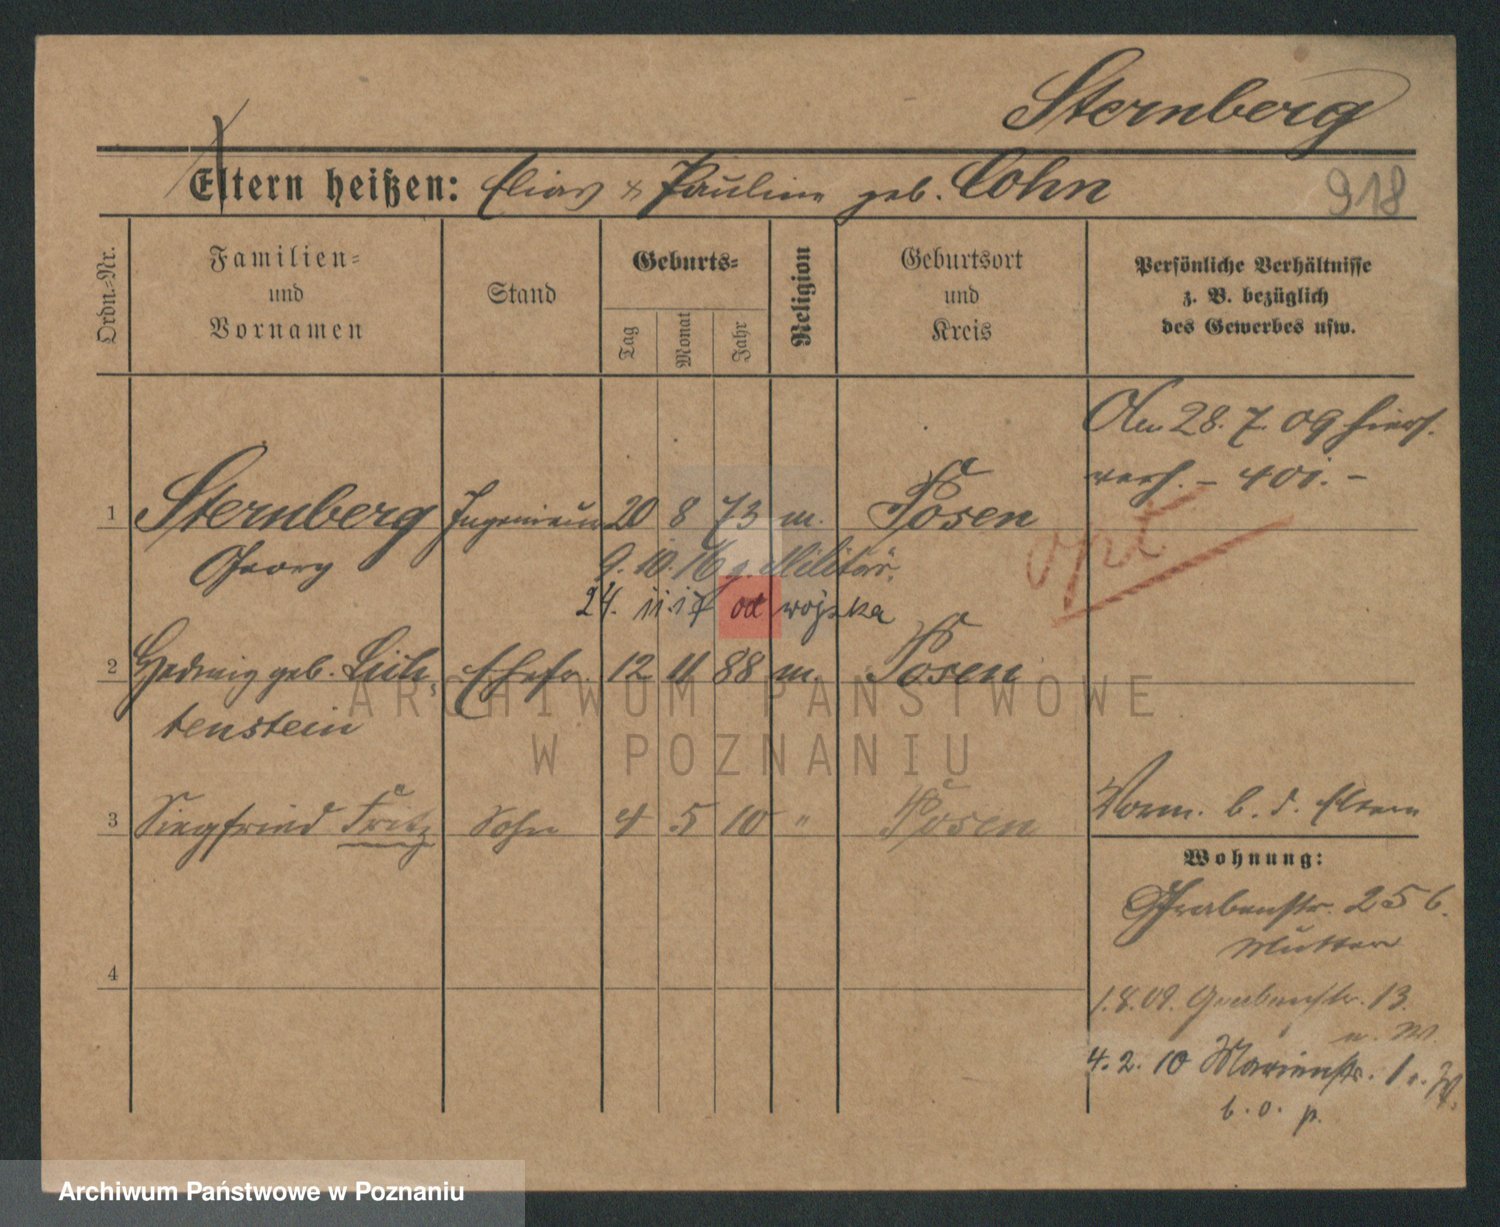 Sternberg
Eltern heißen: Elias & Pauline geb. Cohn
918
Ordn.-Nr.
Familien-
und
Vornamen
Stand
Geburts-
Tag
Monat
Jahr
Religion
Geburtsort
und
Kreis
Persönliche Verhältnisse
z. B. bezüglich
des Gewerbes usw.
Am 28. 7. 09 hiers.
verh. - 401. -
1 Sternberg Ingenieur 20 8 73 m. Posen
Georg
9. 10. 16 z. Militär.
opt
24. 11. 17 od wojska
2 Hedwig geb. Lich- Ehefr. 12 11 88 m. Posen
tenstein
3 Siegfried Fritz Sohn 4 5 10 " Posen
Vorm. b. d. Eltern
Wohnung:
Grabenstr. 25 b.
Mutter
4
1.8.09. Grabenstr. 13.
u. W.
4. 2. 10 Marienstr. 1 e. W.
b. o. p.
ARCHIWUM PAŃSTWOWE
W POZNANIU
Archiwum Państwowe w Poznaniu